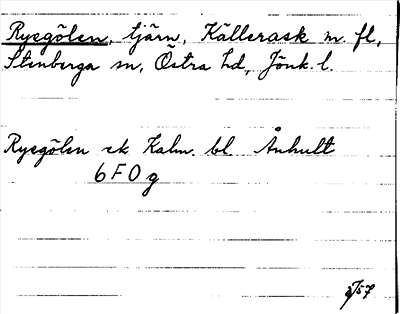 Ryegölen, tjärn, Källerask m. fl,
Stenberga sn, Östra hd, Jönk. l.
Ryegölen ek Kalm. bl Ånhult
6 F O g